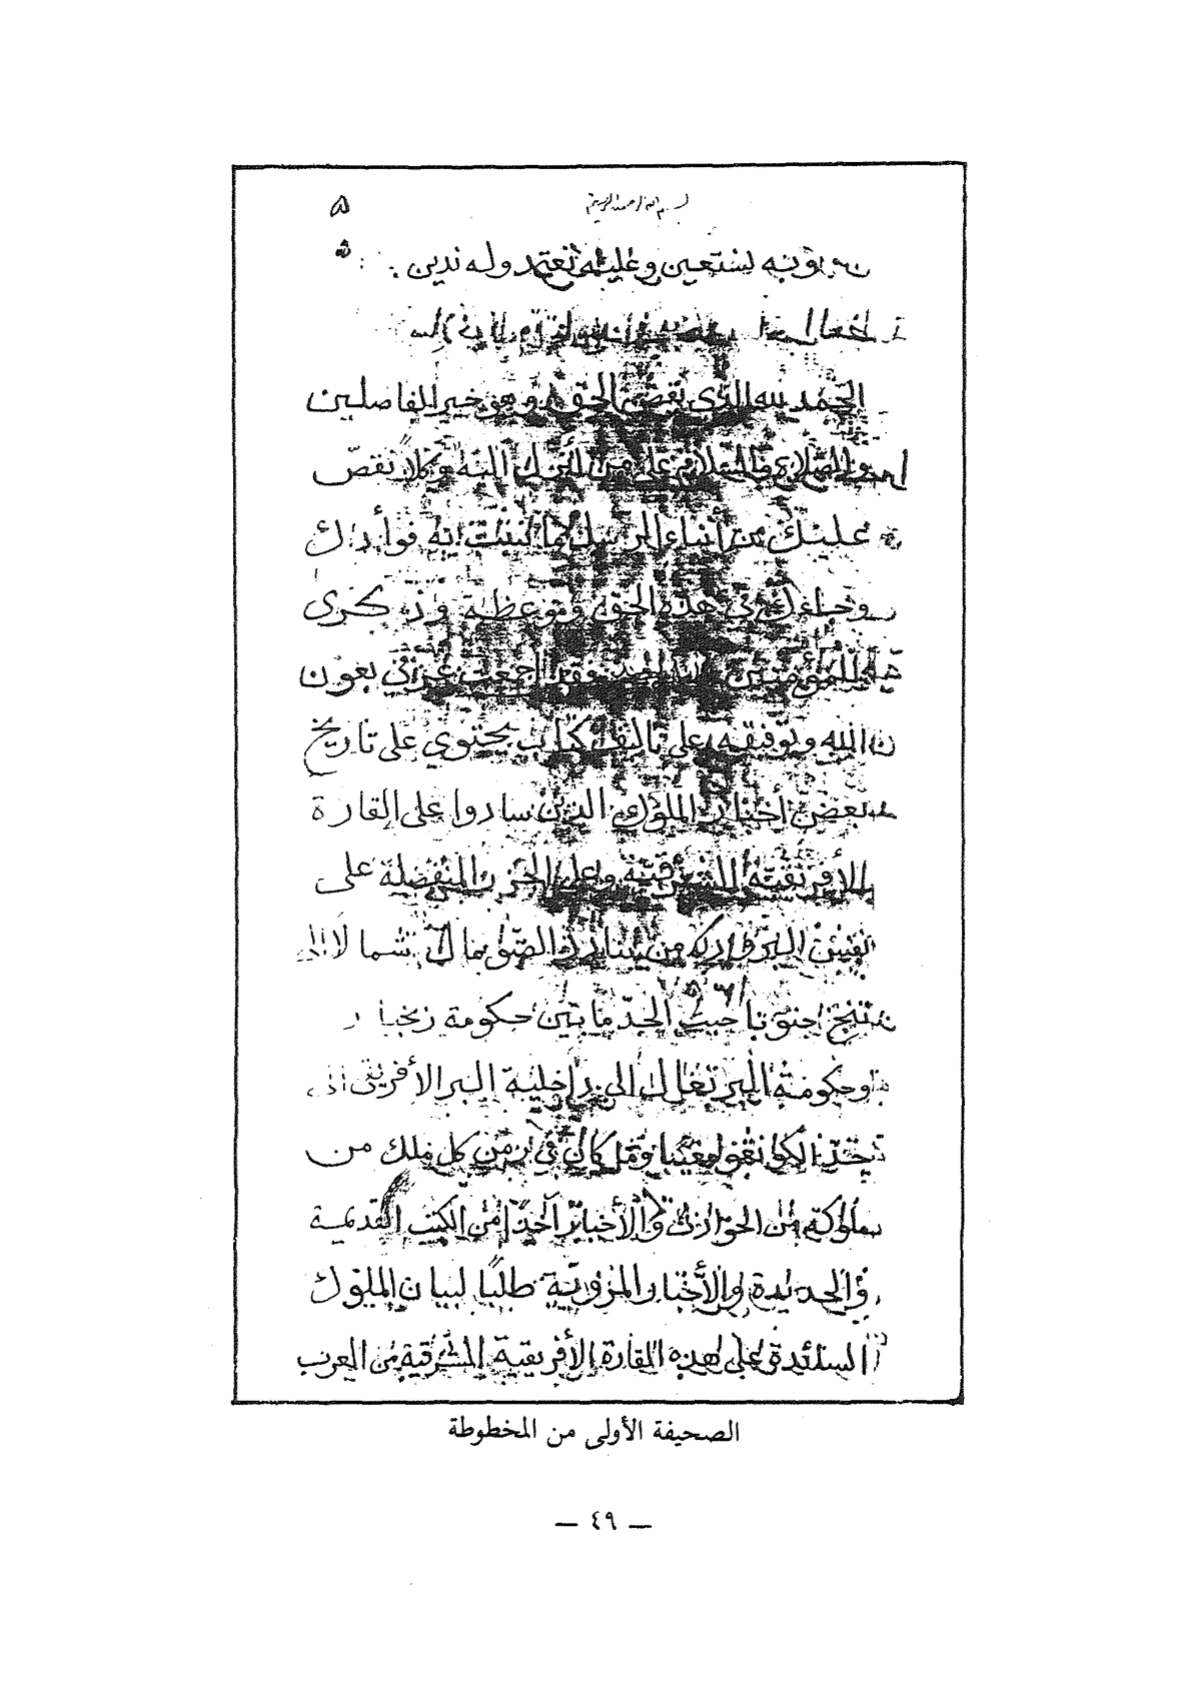 بسم الله الرحمن الرحيم
٥
وبه نستعين وعليه نعتمد وله ندين
الحمد لله الذي يقص الحق وهو خير الفاصلين
والصلاة والسلام على من أنزل اليه وكلاً نقصّ
عليك من أنباء الرسل ما نثبت به فؤادك
وجاءك في هذه الحق وموعظة وذكرى
للمؤمنين فقد أجمعت عزمي بعون
الله وتوفيقه على تأليف كتاب يحتوي على تاريخ
بعض أخبار الملوك الذين ساروا على القارة
الأفريقية الشرقية وعلى الجزر المنفصلة على
البر من بنادر الصومال شمالا الى
جنوبا حيث الحد ما بين حكومة زنجبار
وحكومة البرتغال الى داخلية البر الأفريقى الى
حد الكوانقو وما كان في زمن كل ملك من
ملوكه من الحوادث والأخبار آخذا من الكتب القديمة
والجديدة والأخبار المروية طلبًا لبيان الملوك
السائدة على هذه القارة الأفريقية الشرقية من العرب
الصحيفة الأولى من المخطوطة
— ٤٩ —